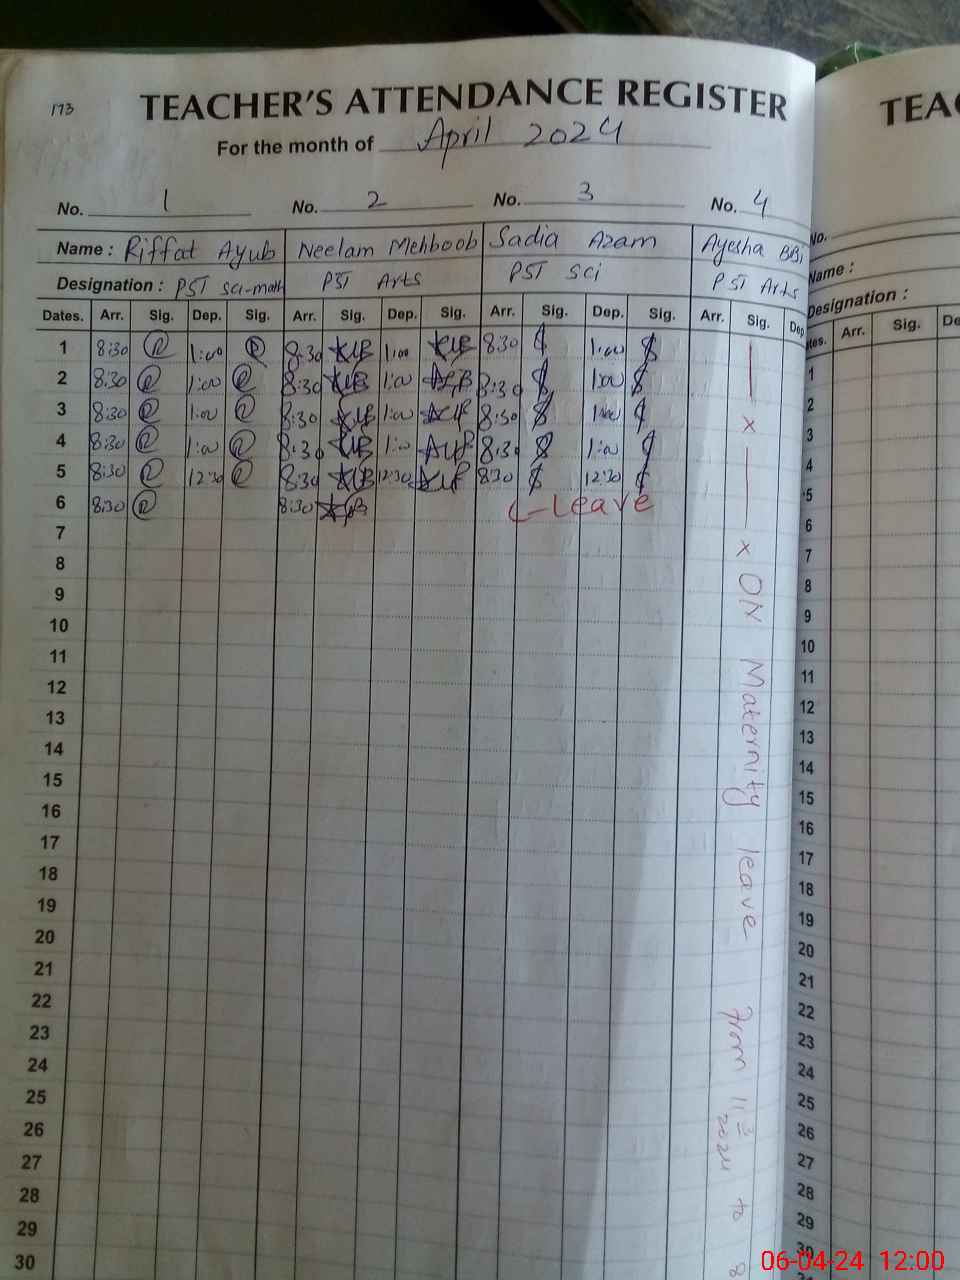 173
TEACHER'S ATTENDANCE REGISTER
For the month of April 2024
No. 1 No. 2 No. 3 No. 4
Name : Riffat Ayub Neelam Mehboob Sadia Azam Ayesha BBi
Designation : PST Sci-math PST Arts PST Sci PST Arts
Dates. Arr. Sig. Dep. Sig. Arr. Sig. Dep. Sig. Arr. Sig. Dep. Sig. Arr. Sig. Dep
1 8:30 1:00 8:30 1:00 8:30 1:00
2 8:30 1:00 8:30 1:00 8:30 1:00
3 8:30 1:00 8:30 1:00 8:30 1:00
4 8:30 1:00 8:30 1:00 8:30 1:00
5 8:30 12:30 8:30 12:30 8:30 12:30
6 8:30 8:30 C-Leave
7
8
9
10
11
12
13
14
15
16
17
18
19
20
21
22
23
24
25
26
27
28
29
30
x x ON Maternity leave from 11 2024 to
TEAC
No.
Name :
Designation :
tes. Arr. Sig. De
1
2
3
4
5
6
7
8
9
10
11
12
13
14
15
16
17
18
19
20
21
22
23
24
25
26
27
28
29
30
06-04-24 12:00